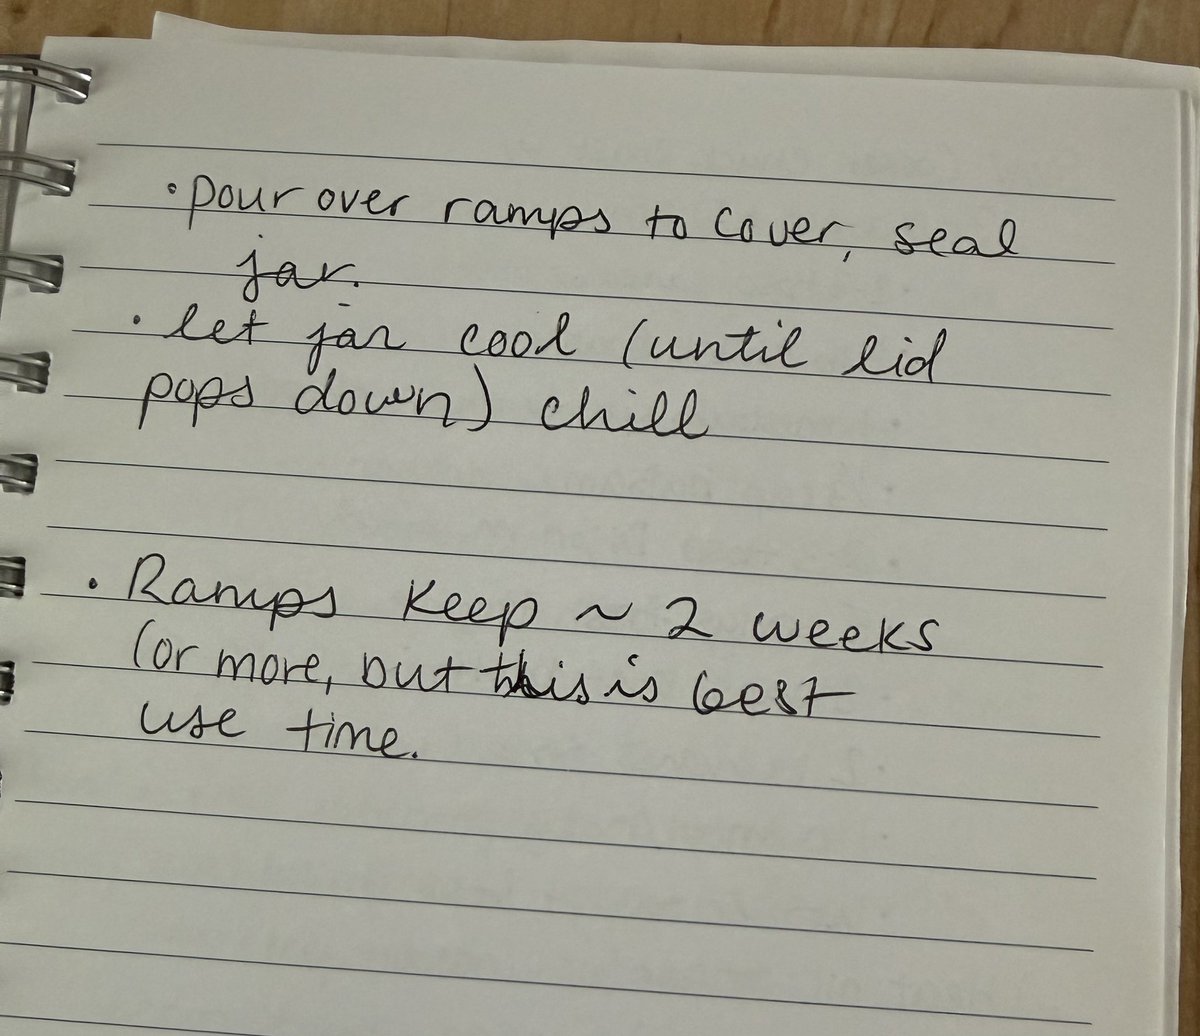 · pour over ramps to cover, seal
jar.
· let jar cool (until lid
pops down) chill
· Ramps keep ~ 2 weeks
(or more, but this is best
use time.